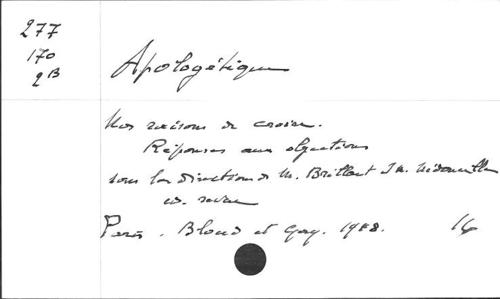 277
170
2B
Apologétique
Nos raisons de croire.
Réponses aux objections
sous la direction de M. Brillant et M. Nédoncelle
Paris. Bloud et Gay. 19
16